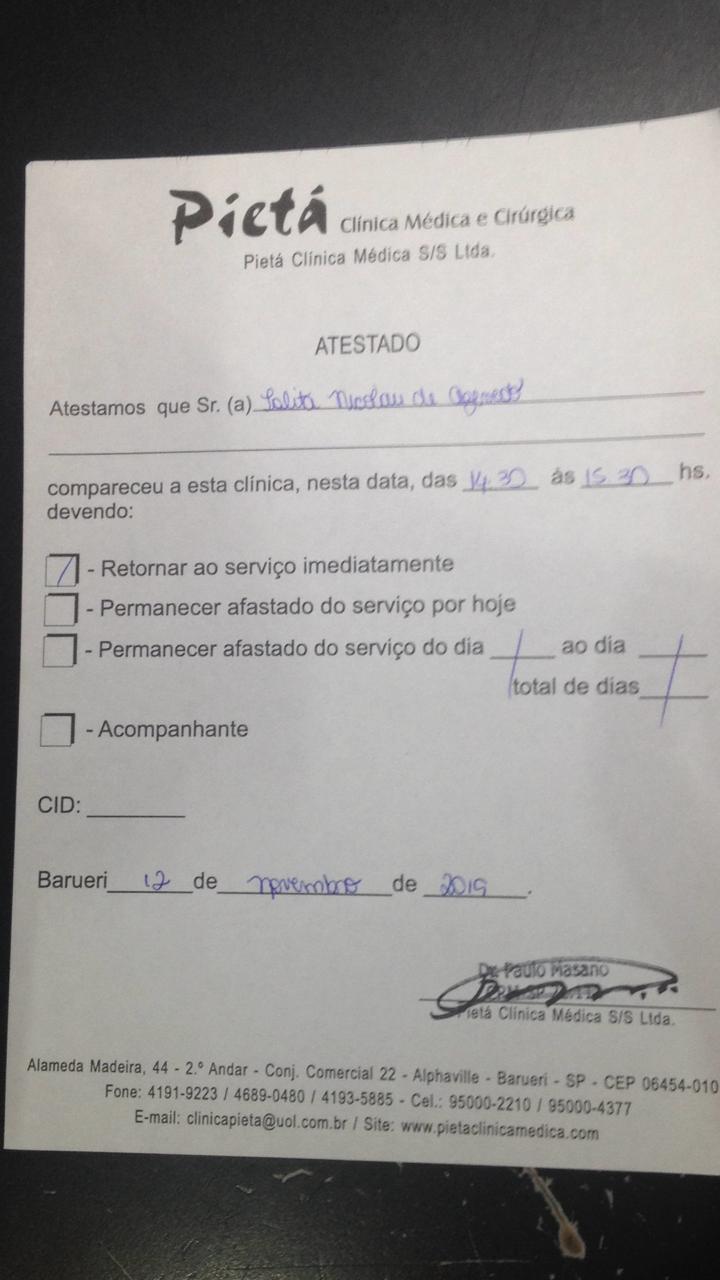 Pietá Clínica Médica e Cirúrgica
Pietá Clínica Médica S/S Ltda.
ATESTADO
Atestamos que Sr. (a) Talita Nicolau de Azevedo
compareceu a esta clínica, nesta data, das 14:30 ás 15:30 hs.
devendo:
- Retornar ao serviço imediatamente
- Permanecer afastado do serviço por hoje
- Permanecer afastado do serviço do dia ao dia
total de dias
- Acompanhante
CID:
Barueri 12 de novembro de 2019.
Dr. Paulo Masano
Pietá Clínica Médica S/S Ltda.
Alameda Madeira, 44 - 2.º Andar - Conj. Comercial 22 - Alphaville - Barueri - SP - CEP 06454-010
Fone: 4191-9223 / 4689-0480 / 4193-5885 - Cel.: 95000-2210 / 95000-4377
E-mail: clinicapieta@uol.com.br / Site: www.pietaclinicamedica.com